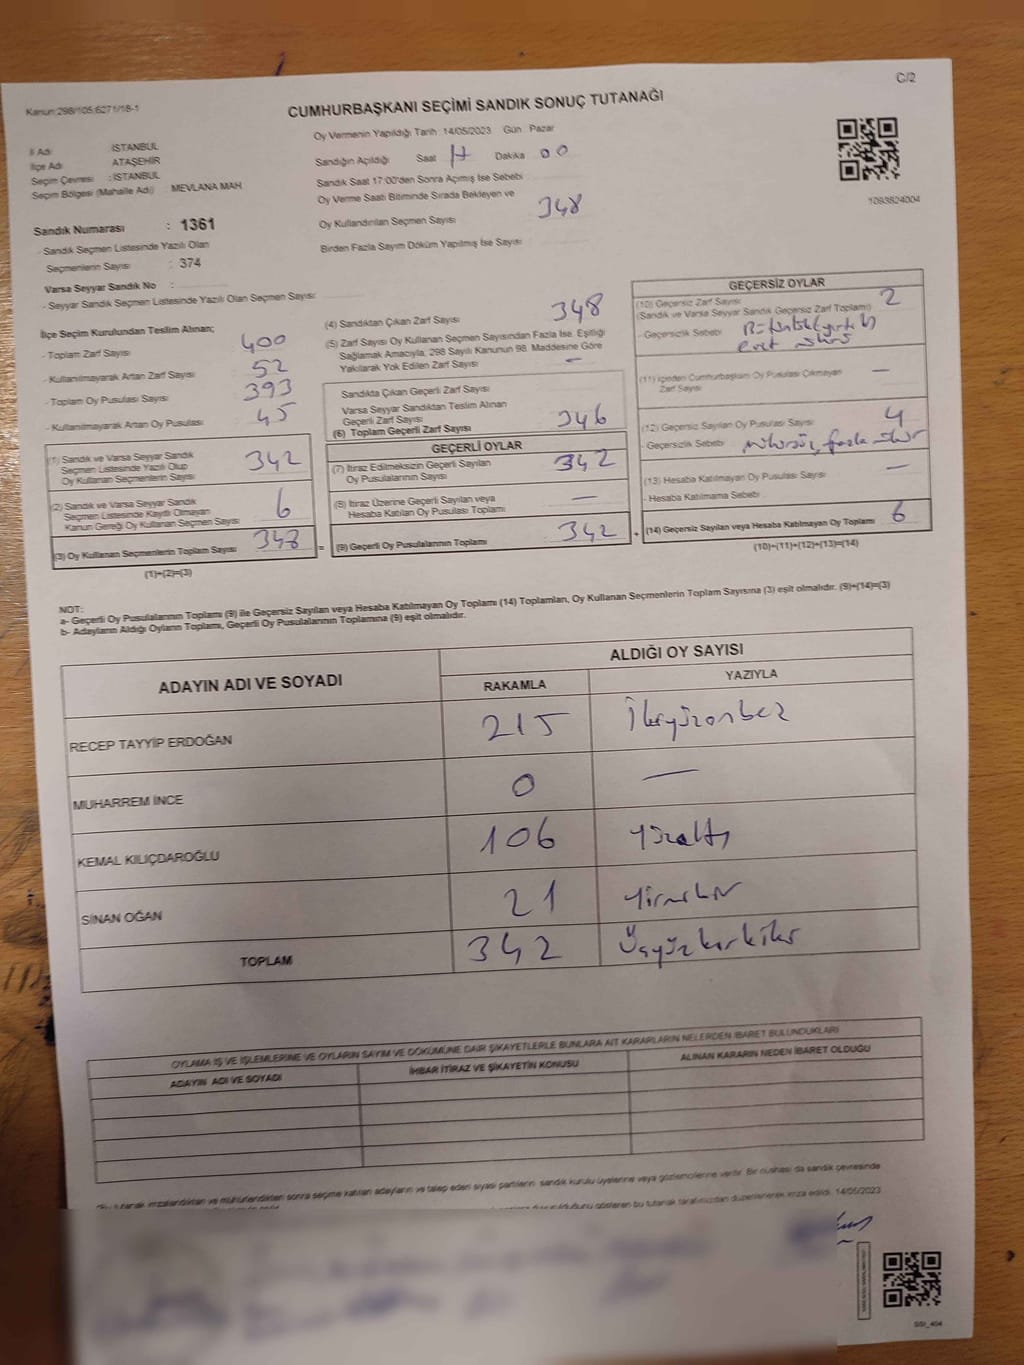 C/2
Kanun:298/105;6271/18-1
CUMHURBAŞKANI SEÇİMİ SANDIK SONUÇ TUTANAĞI
Oy Vermenin Yapıldığı Tarih :14/05/2023 Gün : Pazar
İl Adı : İSTANBUL
İlçe Adı : ATAŞEHİR
Seçim Çevresi : İSTANBUL
Seçim Bölgesi (Mahalle Adı) MEVLANA MAH
Sandığın Açıldığı Saat 17 Dakika 00
Sandık Saat 17:00'den Sonra Açımış İse Sebebi
Oy Verme Saati Bitiminde Sırada Bekleyen ve
Oy Kullandırılan Seçmen Sayısı 348
Birden Fazla Sayım Döküm Yapılmış İse Sayısı
1093624004
Sandık Numarası : 1361
- Sandık Seçmen Listesinde Yazılı Olan
Seçmenlerin Sayısı : 374
Varsa Seyyar Sandık No :
- Seyyar Sandık Seçmen Listesinde Yazılı Olan Seçmen Sayısı:
İlçe Seçim Kurulundan Teslim Alınan;
- Toplam Zarf Sayısı 400
- Kullanılmayarak Artan Zarf Sayısı 52
- Toplam Oy Pusulası Sayısı 393
- Kullanılmayarak Artan Oy Pusulası 45
(1) Sandık ve Varsa Seyyar Sandık
Seçmen Listesinde Yazılı Olup
Oy Kullanan Seçmenlerin Sayısı 342
(2) Sandık ve Varsa Seyyar Sandık
Seçmen Listesinde Kayıtlı Olmayan
Kanun Gereği Oy Kullanan Seçmen Sayısı 6
(3) Oy Kullanan Seçmenlerin Toplam Sayısı 348
(1)+(2)=(3)
(4) Sandıktan Çıkan Zarf Sayısı 348
(5) Zarf Sayısı Oy Kullanan Seçmen Sayısından Fazla İse, Eşitliği
Sağlamak Amacıyla, 298 Sayılı Kanunun 98. Maddesine Göre
Yakılarak Yok Edilen Zarf Sayısı —
Sandıkta Çıkan Geçerli Zarf Sayısı
Varsa Seyyar Sandıktan Teslim Alınan
Geçerli Zarf Sayısı
(6) Toplam Geçerli Zarf Sayısı 346
GEÇERLİ OYLAR
(7) İtiraz Edilmeksizin Geçerli Sayılan
Oy Pusulalarının Sayısı 342
(8) İtiraz Üzerine Geçerli Sayılan veya
Hesaba Katılan Oy Pusulası Toplamı —
= (9) Geçerli Oy Pusulalarının Toplamı 342 +
GEÇERSİZ OYLAR
(10) Geçersiz Zarf Sayısı
(Sandık ve Varsa Seyyar Sandık Geçersiz Zarf Toplamı) 2
- Geçersizlik Sebebi
evet mührü
(11) İçinden Cumhurbaşkanı Oy Pusulası Çıkmayan
Zarf Sayısı —
(12) Geçersiz Sayılan Oy Pusulası Sayısı 4
- Geçersizlik Sebebi mühürsüz, fazla mühür
(13) Hesaba Katılmayan Oy Pusulası Sayısı —
- Hesaba Katılmama Sebebi
(14) Geçersiz Sayılan veya Hesaba Katılmayan Oy Toplamı 6
(10)+(11)+(12)+(13)=(14)
NOT:
a- Geçerli Oy Pusulalarının Toplamı (9) ile Geçersiz Sayılan veya Hesaba Katılmayan Oy Toplamı (14) Toplamları, Oy Kullanan Seçmenlerin Toplam Sayısına (3) eşit olmalıdır. (9)+(14)=(3)
b- Adayların Aldığı Oyların Toplamı, Geçerli Oy Pusulalarının Toplamına (9) eşit olmalıdır.
ADAYIN ADI VE SOYADI
ALDIĞI OY SAYISI
RAKAMLA YAZIYLA
RECEP TAYYİP ERDOĞAN 215 İkiyüzonbeş
MUHARREM İNCE 0 —
KEMAL KILIÇDAROĞLU 106 Yüzaltı
SİNAN OĞAN 21 Yirmibir
TOPLAM 342 Üçyüzkırkiki
OYLAMA İŞ VE İŞLEMLERİNE VE OYLARIN SAYIM VE DÖKÜMÜNE DAİR ŞİKAYETLERLE BUNLARA AİT KARARLARIN NELERDEN İBARET BULUNDUKLARI
ADAYIN ADI VE SOYADI İHBAR İTİRAZ VE ŞİKAYETİN KONUSU ALINAN KARARIN NEDEN İBARET OLDUĞU
İşbu tutanak imzalandıktan ve mühürlendikten sonra seçime katılan adayların ve talep eden siyasi partilerin sandık kurulu üyelerine veya gözlemcilerine verilir. Bir nüshası da sandık çevresinde
gösteren bu tutanak tarafımızdan düzenlenerek imza edildi. 14/05/2023
SSI_404